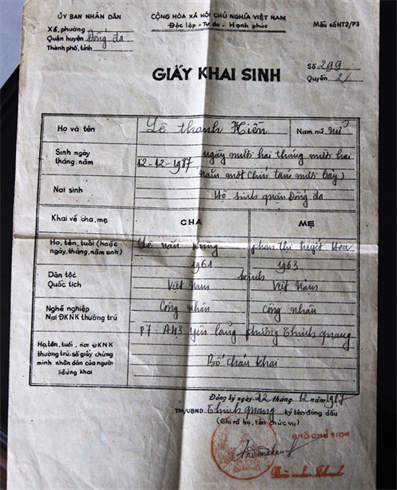 ỦY BAN NHÂN DÂN
Xã, phường
Quận huyện Đống đa
Thành phố, tỉnh
CỘNG HÒA XÃ HỘI CHỦ NGHĨA VIỆT NAM
Độc lập - Tự do - Hạnh phúc
Mẫu số HT2/P3
GIẤY KHAI SINH
Số 299
Quyển 21
Họ và tên
Lê thanh Hiền
Nam nữ nữ
Sinh ngày
tháng, năm
12-12-1987
(ngày mười hai tháng mười hai
năm một chín tám mươi bảy)
Nơi sinh
Hộ sinh quận Đống đa
Khai về cha, mẹ
CHA
MẸ
Họ, tên, tuổi (hoặc
ngày, tháng, năm sinh)
Lê văn
1961
phan thị tuyết Hoa
1963
Dân tộc
Quốc tịch
kinh
Việt Nam
Việt Nam
Nghề nghiệp
Nơi ĐKNK thường trú
Công nhân
Công nhân
P7 - A43 yên lãng phường thịnh quang
Họ, tên, tuổi, nơi ĐKNK
thường trú, số giấy chứng
minh nhân dân của người
đứng khai
Bố cháu khai
Đăng ký ngày 22 tháng 12 năm 1987
TM/UBND thịnh quang ký tên đóng dấu
(Ghi rõ họ, tên, chức vụ)
PHÓ CHỦ TỊCH